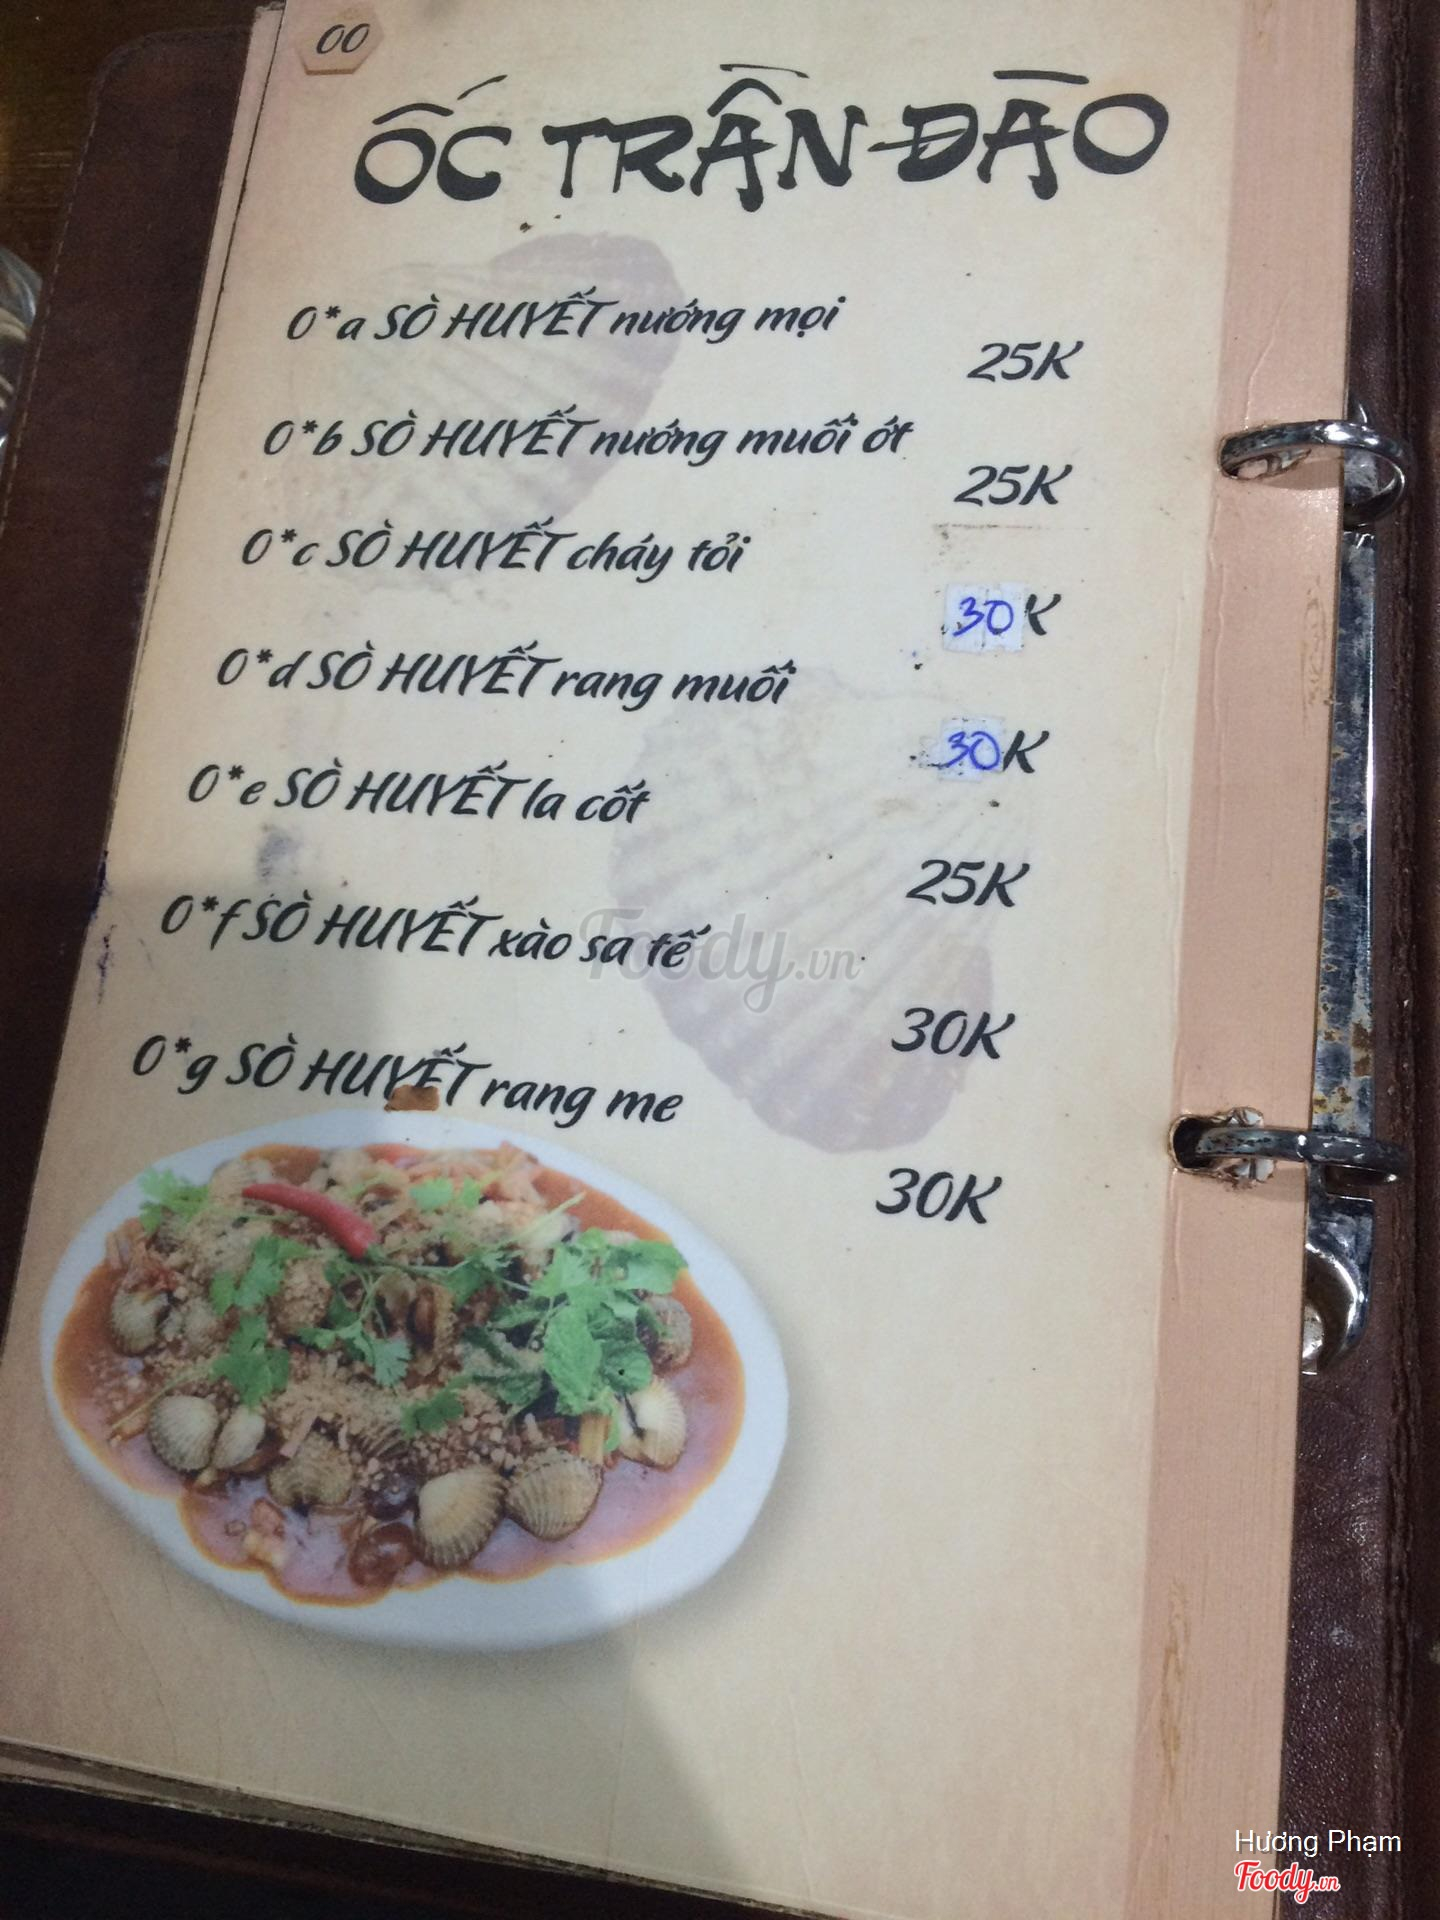 00
ỐC TRẦN ĐÀO
0*a SÒ HUYẾT nướng mọi
25K
0*b SÒ HUYẾT nướng muối ớt
25K
0*c SÒ HUYẾT cháy tỏi
30K
0*d SÒ HUYẾT rang muối
30K
0*e SÒ HUYẾT la cốt
25K
0*f SÒ HUYẾT xào sa tế
30K
0*g SÒ HUYẾT rang me
30K
Foody.vn
Hương Phạm
Foody.vn